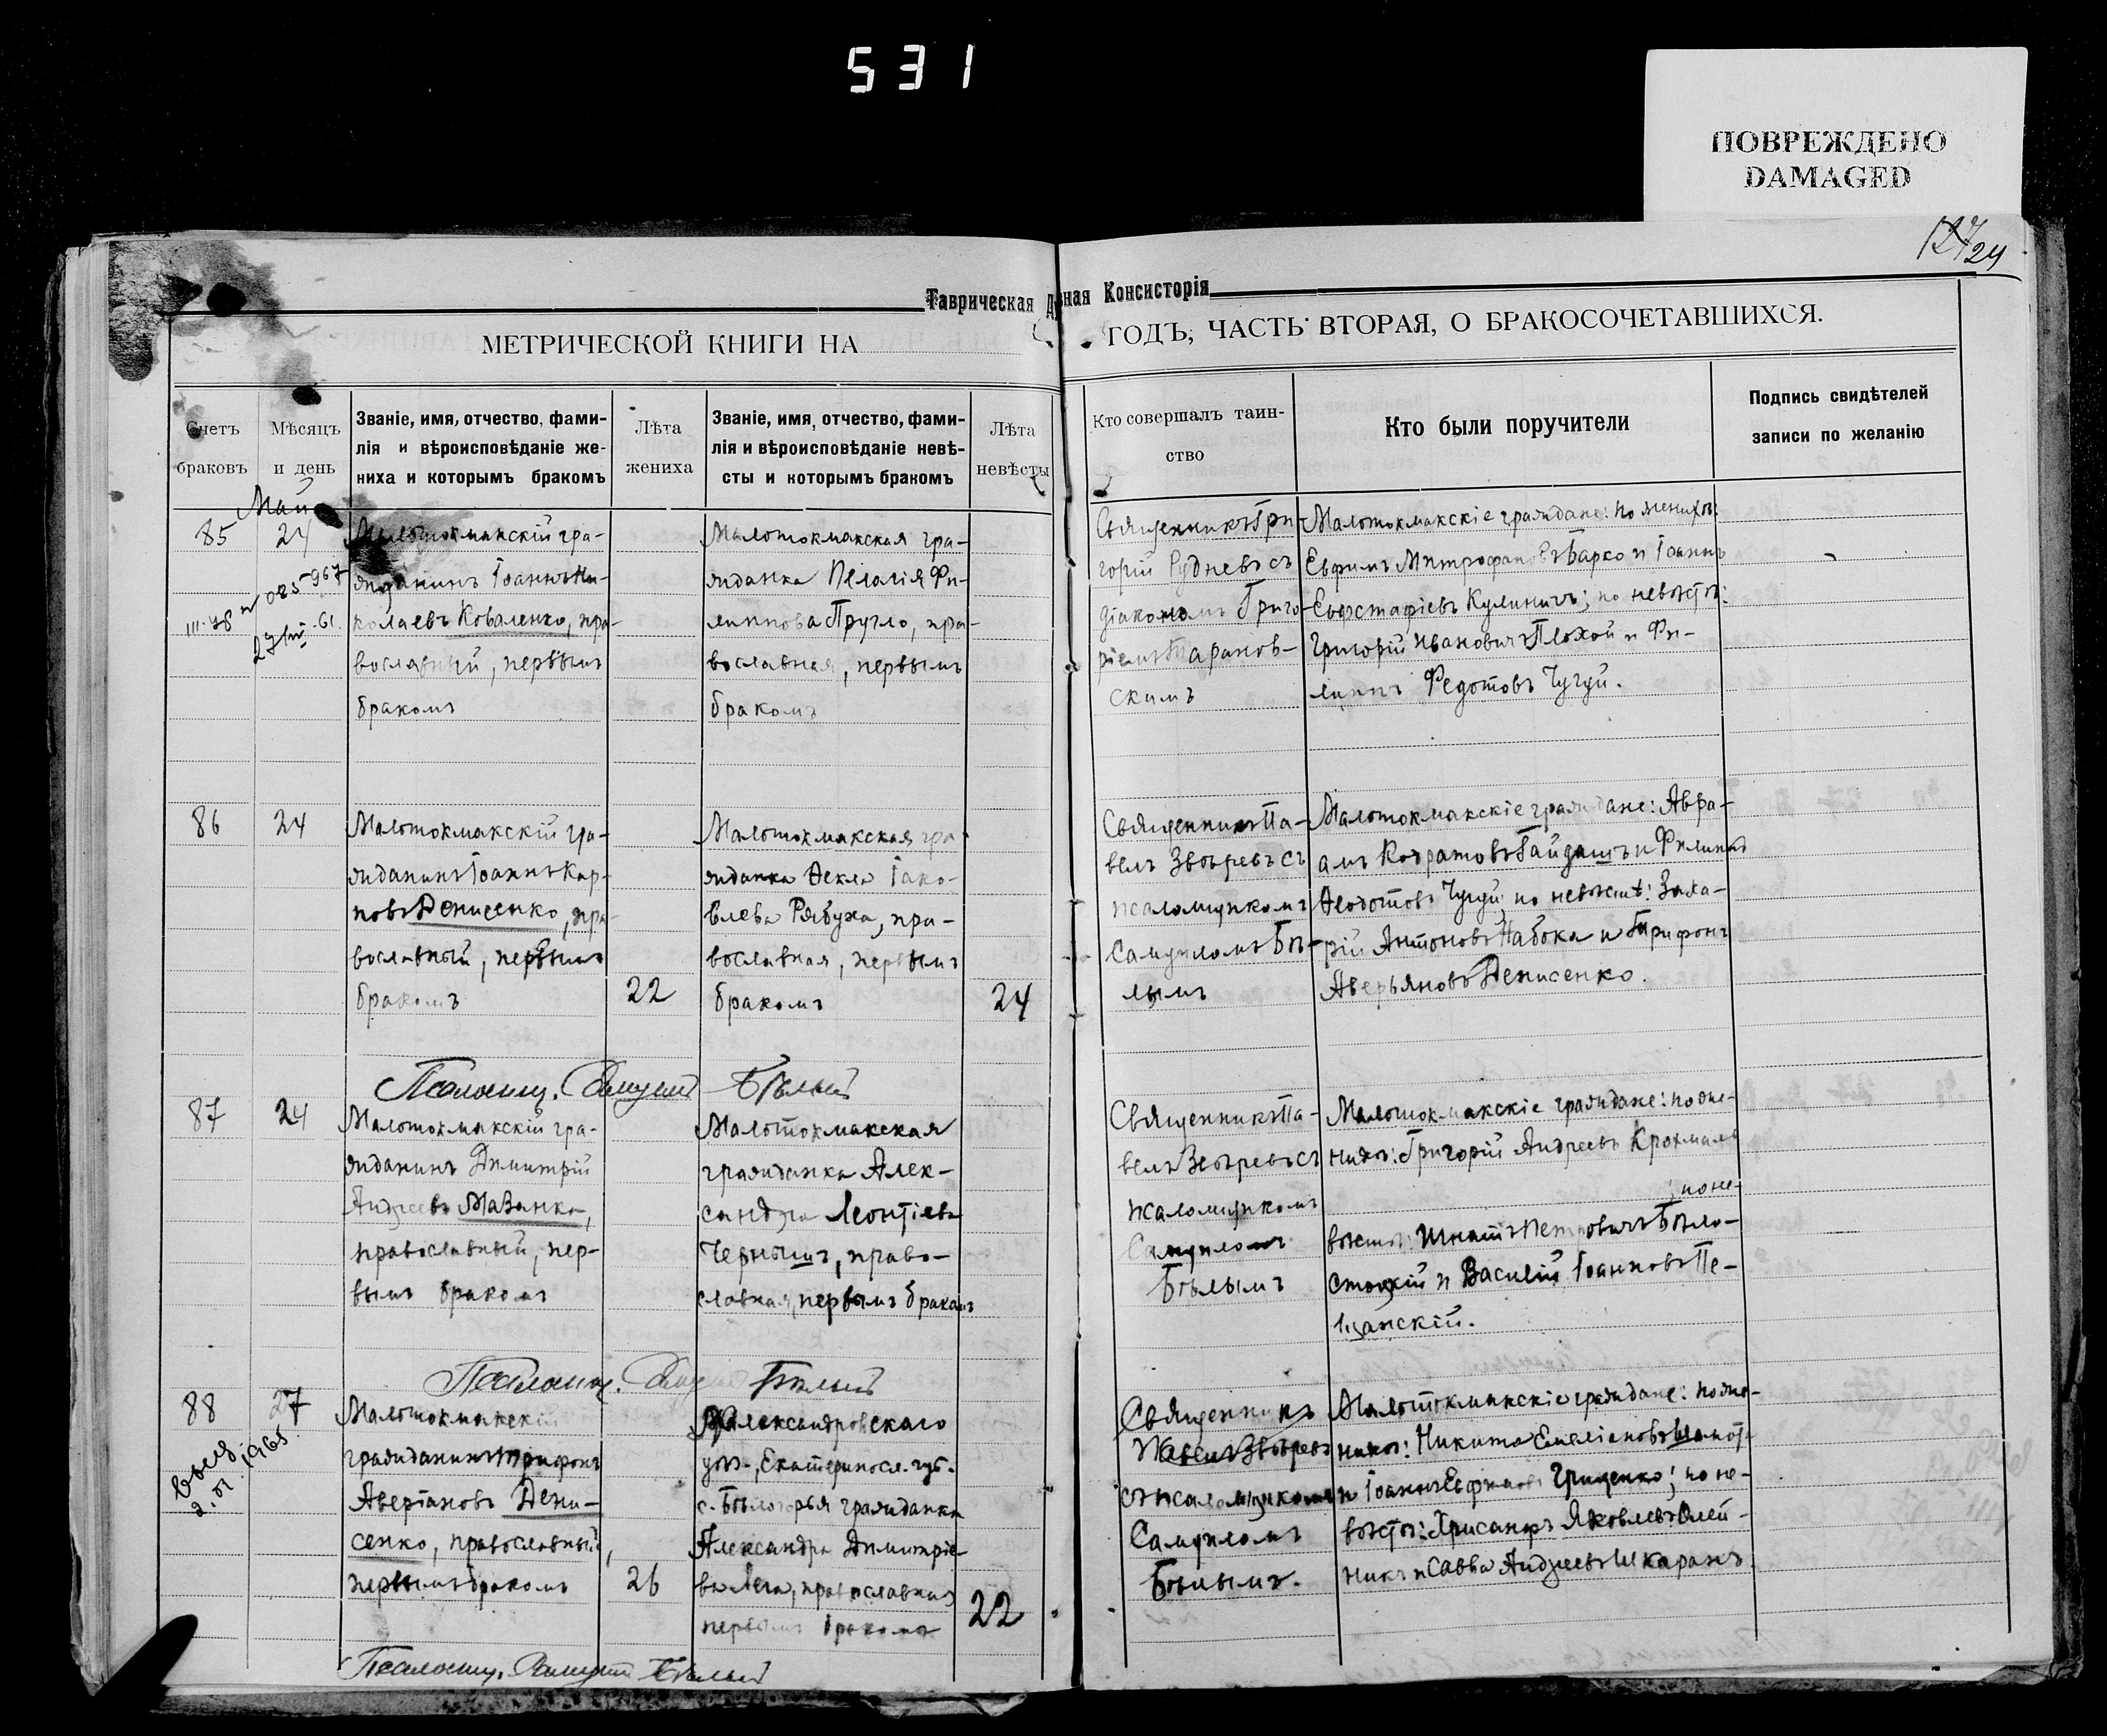 531
ПОВРЕЖДЕНО
DAMAGED
Таврическая Духовная Консисторія
МЕТРИЧЕСКОЙ КНИГИ НА
ГОДЪ, ЧАСТЬ ВТОРАЯ, О БРАКОСОЧЕТАВШИХСЯ.
Счетъ
браковъ
Мѣсяцъ
и день
Званіе, имя, отчество, фами-
лія и вѣроисповѣданіе же-
ниха и которымъ бракомъ
Лѣта
жениха
Званіе, имя, отчество, фами-
лія и вѣроисповѣданіе невѣ-
сты и которымъ бракомъ
Лѣта
невѣсты
Кто совершалъ таин-
ство
Кто были поручители
Подпись свидѣтелей
записи по желанію
Май
85
24
Малотокмакскій гра-
жданинъ Іоаннъ Ни-
колаевъ Коваленко, пра-
вославный, первымъ
бракомъ
Малотокмакская гра-
жданка Пелагія Фи-
липпова Пругло, пра-
вославная, первымъ
бракомъ
Священникъ Гри-
горій Рудневъ съ
діакономъ Григо-
ріемъ Барановъ-
скимъ
Малотокмакскіе граждане: по женихѣ:
Евфимъ Митрофановъ Барко и Іоаннъ
Евфстафіевъ Кулиничъ; по невѣстѣ:
Григорій Ивановичъ Плохой и Фи-
липпъ Федотовъ Чугуй.
86
24
Малотокмакскій гра-
жданинъ Іоаннъ Кар-
повъ Денисенко, пра-
вославный, первымъ
бракомъ
22
Малотокмакская гра-
жданка Ѳекла Іако-
влева Рябуха, пра-
вославная, первымъ
бракомъ
24
Священникъ Па-
велъ Звѣревъ съ
псаломщикомъ
Самуиломъ Бѣ-
лымъ
Малотокмакскіе граждане: Авра-
амъ Кодратовъ Гайдашъ и Филиппъ
Ѳеодотовъ Чугуй; по невѣстѣ: Заха-
рій Антоновъ Набока и Трифонъ
Аверьяновъ Денисенко.
Псаломщ. Самуилъ Бѣлый
87
24
Малотокмакскій гра-
жданинъ Димитрій
Андреевъ Мазанко,
православный, пер-
вымъ бракомъ
Малотокмакская
гражданка Алек-
сандра Леонтіева
Чернышъ, право-
славная, первымъ бракомъ
Священникъ Па-
велъ Звѣревъ съ
псаломщикомъ
Самуиломъ
Бѣлымъ
Малотокмакскіе граждане: по же-
нихѣ: Григорій Андреевъ Крохмаль
; по не-
вѣстѣ: Игнатъ Петровичъ Бѣло-
стоцкій и Василій Іоанновъ Пе-
щанскій.
Псаломщ. Самуилъ Бѣлый
88
27
Малотокмакскій
гражданинъ Трифонъ
Аверіановъ Дени-
сенко, православный,
первымъ бракомъ
26
Александровскаго
уѣз., Екатериносл. губ.
с. Бѣлогорья гражданка
Александра Димитріе-
ва Лега, православная
первымъ бракомъ
22
Священникъ
Павелъ Звѣревъ
съ псаломщикомъ
Самуиломъ
Бѣлымъ.
Малотокмакскіе граждане: по же-
нихѣ: Никита Емеліановъ
и Іоаннъ Евфимовъ Гриценко; по не-
вѣстѣ: Хрисанфъ Яковлевъ Олей-
никъ и Савва Андреевъ Шкаранъ.
Псаломщ. Самуилъ Бѣлый